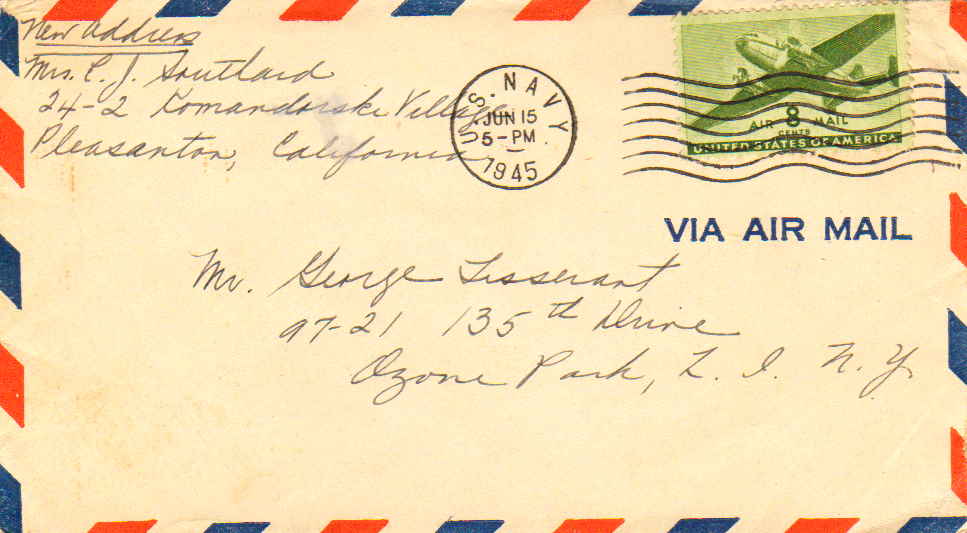 New Address
Mrs. C. J. Southard
24-2 Komandorski Village
Pleasanton, California
U.S. NAVY.
JUN 15
5-PM
1945
AIR 8 MAIL
CENTS
UNITED STATES OF AMERICA
VIA AIR MAIL
Mr. George Tisserant
97-21 135th Drive
Ozone Park, L. I. N. Y.